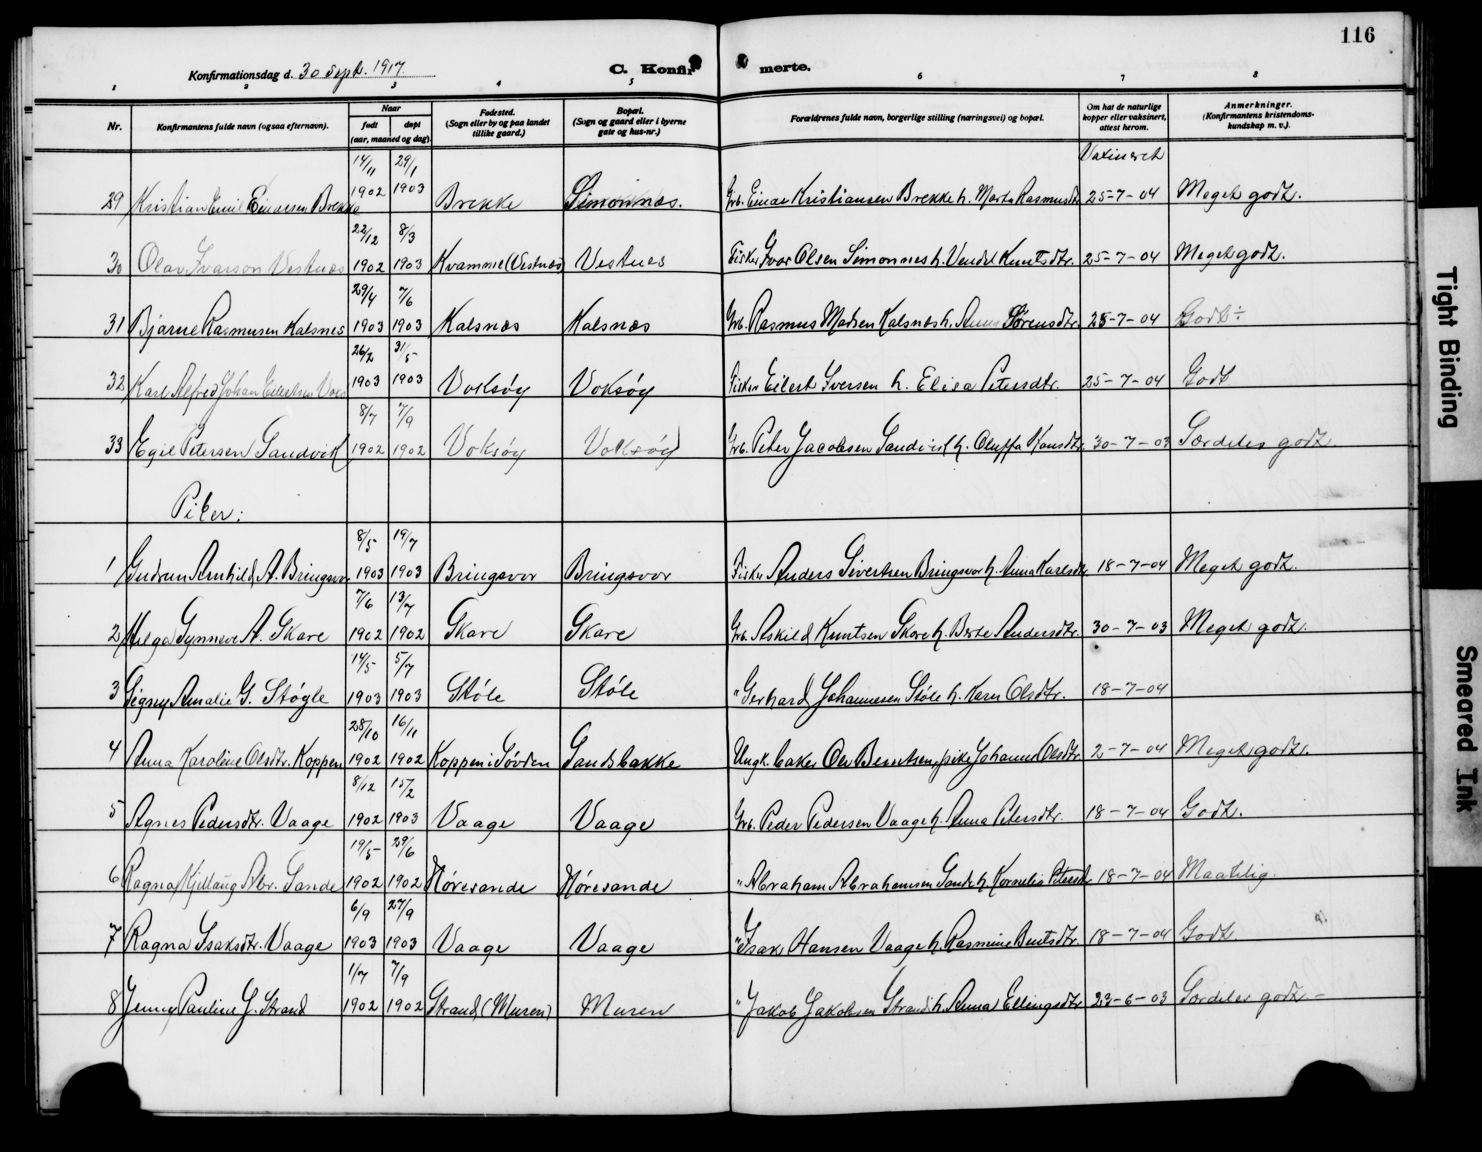 116
Konfirmationsdag d. 30 Sept. 1917
C. Konfirmerte.
1 2 3 4 5 6 7 8
Nr.
Konfirmantens fulde navn (ogsaa efternavn).
Naar
født
døpt
(aar, maaned og dag).
Fødested.
(Sogn eller by og paa landet
tillike gaard.)
Bopæl.
(Sogn og gaard eller i byerne
gate og hus-nr.)
Forældrenes fulde navn, borgerlige stilling (næringsvei) og bopæl.
Om hat de naturlige
kopper eller vaksinert,
attest herom.
Anmerkninger.
(Konfirmantens kristendoms-
kundskap m. v.).
Vaxineret
14/11 29/1
29 Kristian Emil Einarsen Brekke 1902 1903 Brekke Simonnæs. Grb. Einar Kristiansen Brekke h. Marta Rasmusdtr. 25-7-04 Meget godt.
22/12 8/3
30 Olav Ivarson Vestnes 1902 1903 Kvamme (Vestnæs) Vestnes Fisker Ivar Olsen Simonnes h. Vendel Knutsdtr. 25-7-04 Meget godt.
29/4 7/6
31 Bjarne Rasmusen Kalsnes 1903 1903 Kalsnæs Kalsnæs Grb. Rasmus Madsen Kalsnæs h. Anne Sørensdtr. 25-7-04 Godt ÷
26/2 31/5
32 Karl Alfred Johan Eilertsen 1903 1903 Voksøy Voksøy Fisker Eilert Iversen h. Elisa Petersdtr. 25-7-04 Godt
8/7 7/9
33 Egil Petersen Sandvik 1902 1902 Voksøy Voksøy Grb. Peter Jacobsen Sandvik h. Oluffa Hansdtr. 30-7-03 Særdeles godt
Piker:
8/5 19/7
1 Gudrun Arnhild A. Bringsvor 1903 1903 Bringsvor Bringsvor Fisker Anders Sivertsen Bringsvor h. Anna Karlsdtr. 18-7-04 Meget godt.
7/6 13/7
2 Helga Synneve A. Skare 1902 1902 Skare Skare Grb. Askild Knutsen Skare h. Berte Andersdtr. 30-7-03 Meget godt.
14/5 5/7
3 Signy Amalie G. Støyle 1903 1903 Støle Støle " Gerhard Johannesen Støle h. Karen Olsdtr. 18-7-04
28/10 16/11
4 Anna Karoline Olsdtr. Koppen 1902 1902 Koppen i Søvden Sandsbakke Ungk. baker Ole Berntsen, pike Johanne Olsdtr. 2-7-04 Meget godt.
8/12 15/2
5 Agnes Pedersdtr. Vaage 1902 1903 Vaage Vaage Grb. Peder Pedersen Vaage h. Anna Petersdtr. 18-7-04 Godt.
19/5 29/6
6 Ragna Kjellaug Abr. Sande 1902 1902 Høresande Høresande " Abraham Abrahamsen Sande h. Kornelia Petersdtr. 18-7-04 Maatelig.
6/9 27/9
7 Ragna Isaksdtr. Vaage 1903 1903 Vaage Vaage " Isak Hansen Vaage h. Rasmine Bentsdtr. 18-7-04 Godt
1/7 7/9
8 Jenny Pauline J. Strand 1902 1902 Strand (Muren) Muren " Jakob Jakobsen Strand h. Anna Ellingsdtr. 23-6-03 Særdeles godt -
Tight Binding
Smeared Ink